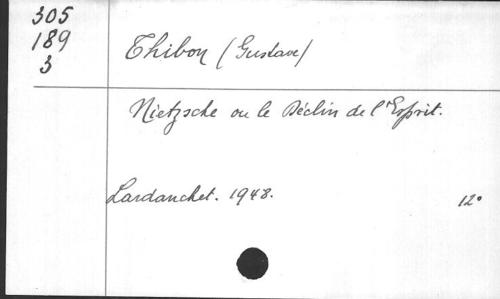 305
189
3
Thibon (Gustave)
Nietzsche ou le Déclin de l'Esprit.
Lardanchet. 1948.
12°